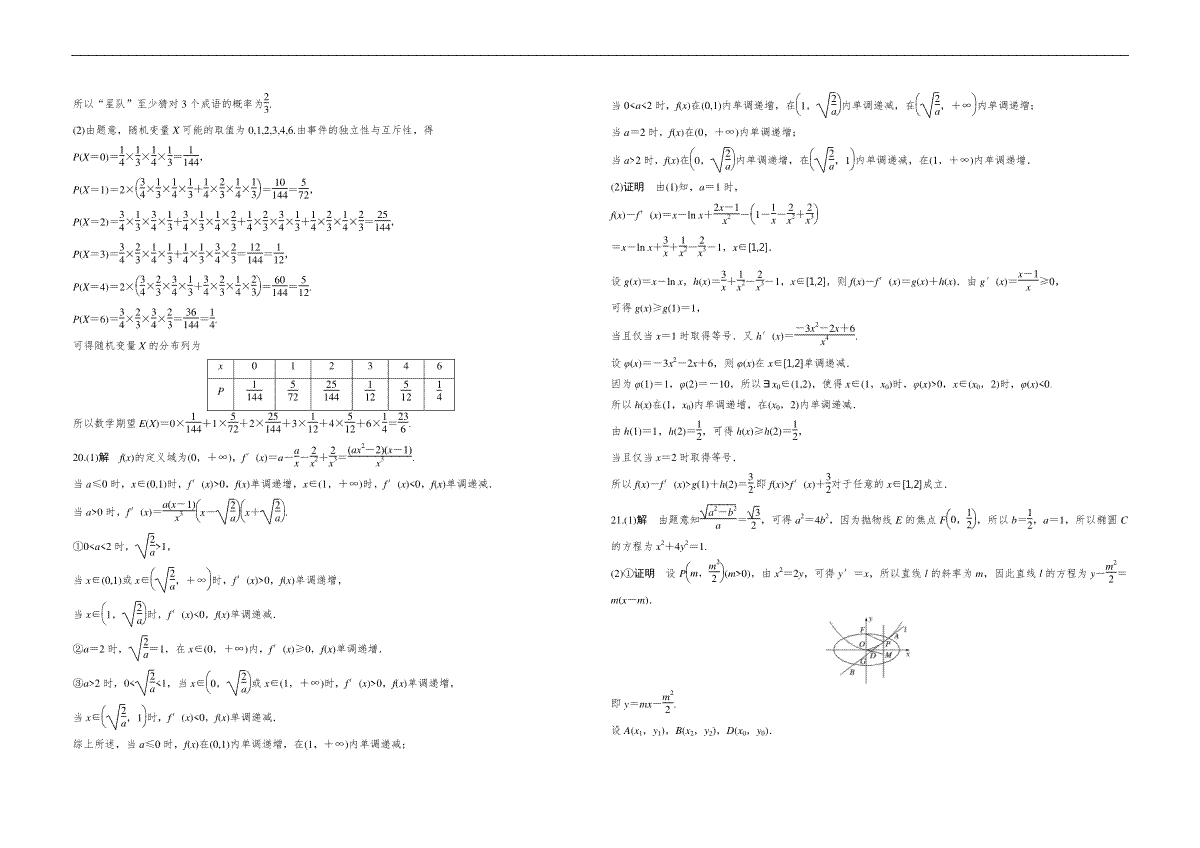 所以“星队”至少猜对 3 个成语的概率为2/3.
(2)由题意，随机变量 X 可能的取值为 0,1,2,3,4,6.由事件的独立性与互斥性，得
P(X＝0)＝1/4×1/3×1/4×1/3＝1/144，
P(X＝1)＝2×(3/4×1/3×1/4×1/3＋1/4×2/3×1/4×1/3)＝10/144＝5/72，
P(X＝2)＝3/4×1/3×3/4×1/3＋3/4×1/3×1/4×2/3＋1/4×2/3×3/4×1/3＋1/4×2/3×1/4×2/3＝25/144，
P(X＝3)＝3/4×2/3×1/4×1/3＋1/4×1/3×3/4×2/3＝12/144＝1/12，
P(X＝4)＝2×(3/4×2/3×3/4×1/3＋3/4×2/3×1/4×2/3)＝60/144＝5/12.
P(X＝6)＝3/4×2/3×3/4×2/3＝36/144＝1/4.
可得随机变量 X 的分布列为
x 0 1 2 3 4 6
P 1/144 5/72 25/144 1/12 5/12 1/4
所以数学期望 E(X)＝0×1/144＋1×5/72＋2×25/144＋3×1/12＋4×5/12＋6×1/4＝23/6.
20.(1)解 f(x)的定义域为(0，＋∞)，f′(x)＝a－a/x－2/x²＋2/x³＝(ax²－2)(x－1)/x³.
当 a≤0 时，x∈(0,1)时，f′(x)>0，f(x)单调递增，x∈(1，＋∞)时，f′(x)<0，f(x)单调递减．
当 a>0 时，f′(x)＝a(x－1)/x³(x－√(2/a))(x＋√(2/a)).
①0<a<2 时，√(2/a)>1，
当 x∈(0,1)或 x∈(√(2/a)，＋∞)时，f′(x)>0，f(x)单调递增，
当 x∈(1，√(2/a))时，f′(x)<0，f(x)单调递减．
②a＝2 时，√(2/a)＝1，在 x∈(0，＋∞)内，f′(x)≥0，f(x)单调递增．
③a>2 时，0<√(2/a)<1，当 x∈(0，√(2/a))或 x∈(1，＋∞)时，f′(x)>0，f(x)单调递增，
当 x∈(√(2/a)，1)时，f′(x)<0，f(x)单调递减．
综上所述，当 a≤0 时，f(x)在(0,1)内单调递增，在(1，＋∞)内单调递减；
当 0<a<2 时，f(x)在(0,1)内单调递增，在(1，√(2/a))内单调递减，在(√(2/a)，＋∞)内单调递增；
当 a＝2 时，f(x)在(0，＋∞)内单调递增；
当 a>2 时，f(x)在(0，√(2/a))内单调递增，在(√(2/a)，1)内单调递减，在(1，＋∞)内单调递增．
(2)证明 由(1)知，a＝1 时，
f(x)－f′(x)＝x－ln x＋(2x－1)/x²－(1－1/x－2/x²＋2/x³)
＝x－ln x＋3/x＋1/x²－2/x³－1，x∈[1,2]．
设 g(x)＝x－ln x，h(x)＝3/x＋1/x²－2/x³－1，x∈[1,2]，则 f(x)－f′(x)＝g(x)＋h(x)．由 g′(x)＝(x－1)/x≥0，
可得 g(x)≥g(1)＝1，
当且仅当 x＝1 时取得等号．又 h′(x)＝(－3x²－2x＋6)/x⁴.
设 φ(x)＝－3x²－2x＋6，则 φ(x)在 x∈[1,2]单调递减．
因为 φ(1)＝1，φ(2)＝－10，所以∃x₀∈(1,2)，使得 x∈(1，x₀)时，φ(x)>0，x∈(x₀，2)时，φ(x)<0.
所以 h(x)在(1，x₀)内单调递增，在(x₀，2)内单调递减．
由 h(1)＝1，h(2)＝1/2，可得 h(x)≥h(2)＝1/2，
当且仅当 x＝2 时取得等号．
所以 f(x)－f′(x)>g(1)＋h(2)＝3/2.即 f(x)>f′(x)＋3/2对于任意的 x∈[1,2]成立．
21.(1)解 由题意知√(a²－b²)/a＝√3/2，可得 a²＝4b²，因为抛物线 E 的焦点 F(0，1/2)，所以 b＝1/2，a＝1，所以椭圆 C
的方程为 x²＋4y²＝1.
(2)①证明 设 P(m，m²/2)(m>0)，由 x²＝2y，可得 y′＝x，所以直线 l 的斜率为 m，因此直线 l 的方程为 y－m²/2＝
m(x－m)．
y
l
F
A
O
P
D
M
x
G
B
即 y＝mx－m²/2.
设 A(x₁，y₁)，B(x₂，y₂)，D(x₀，y₀)．